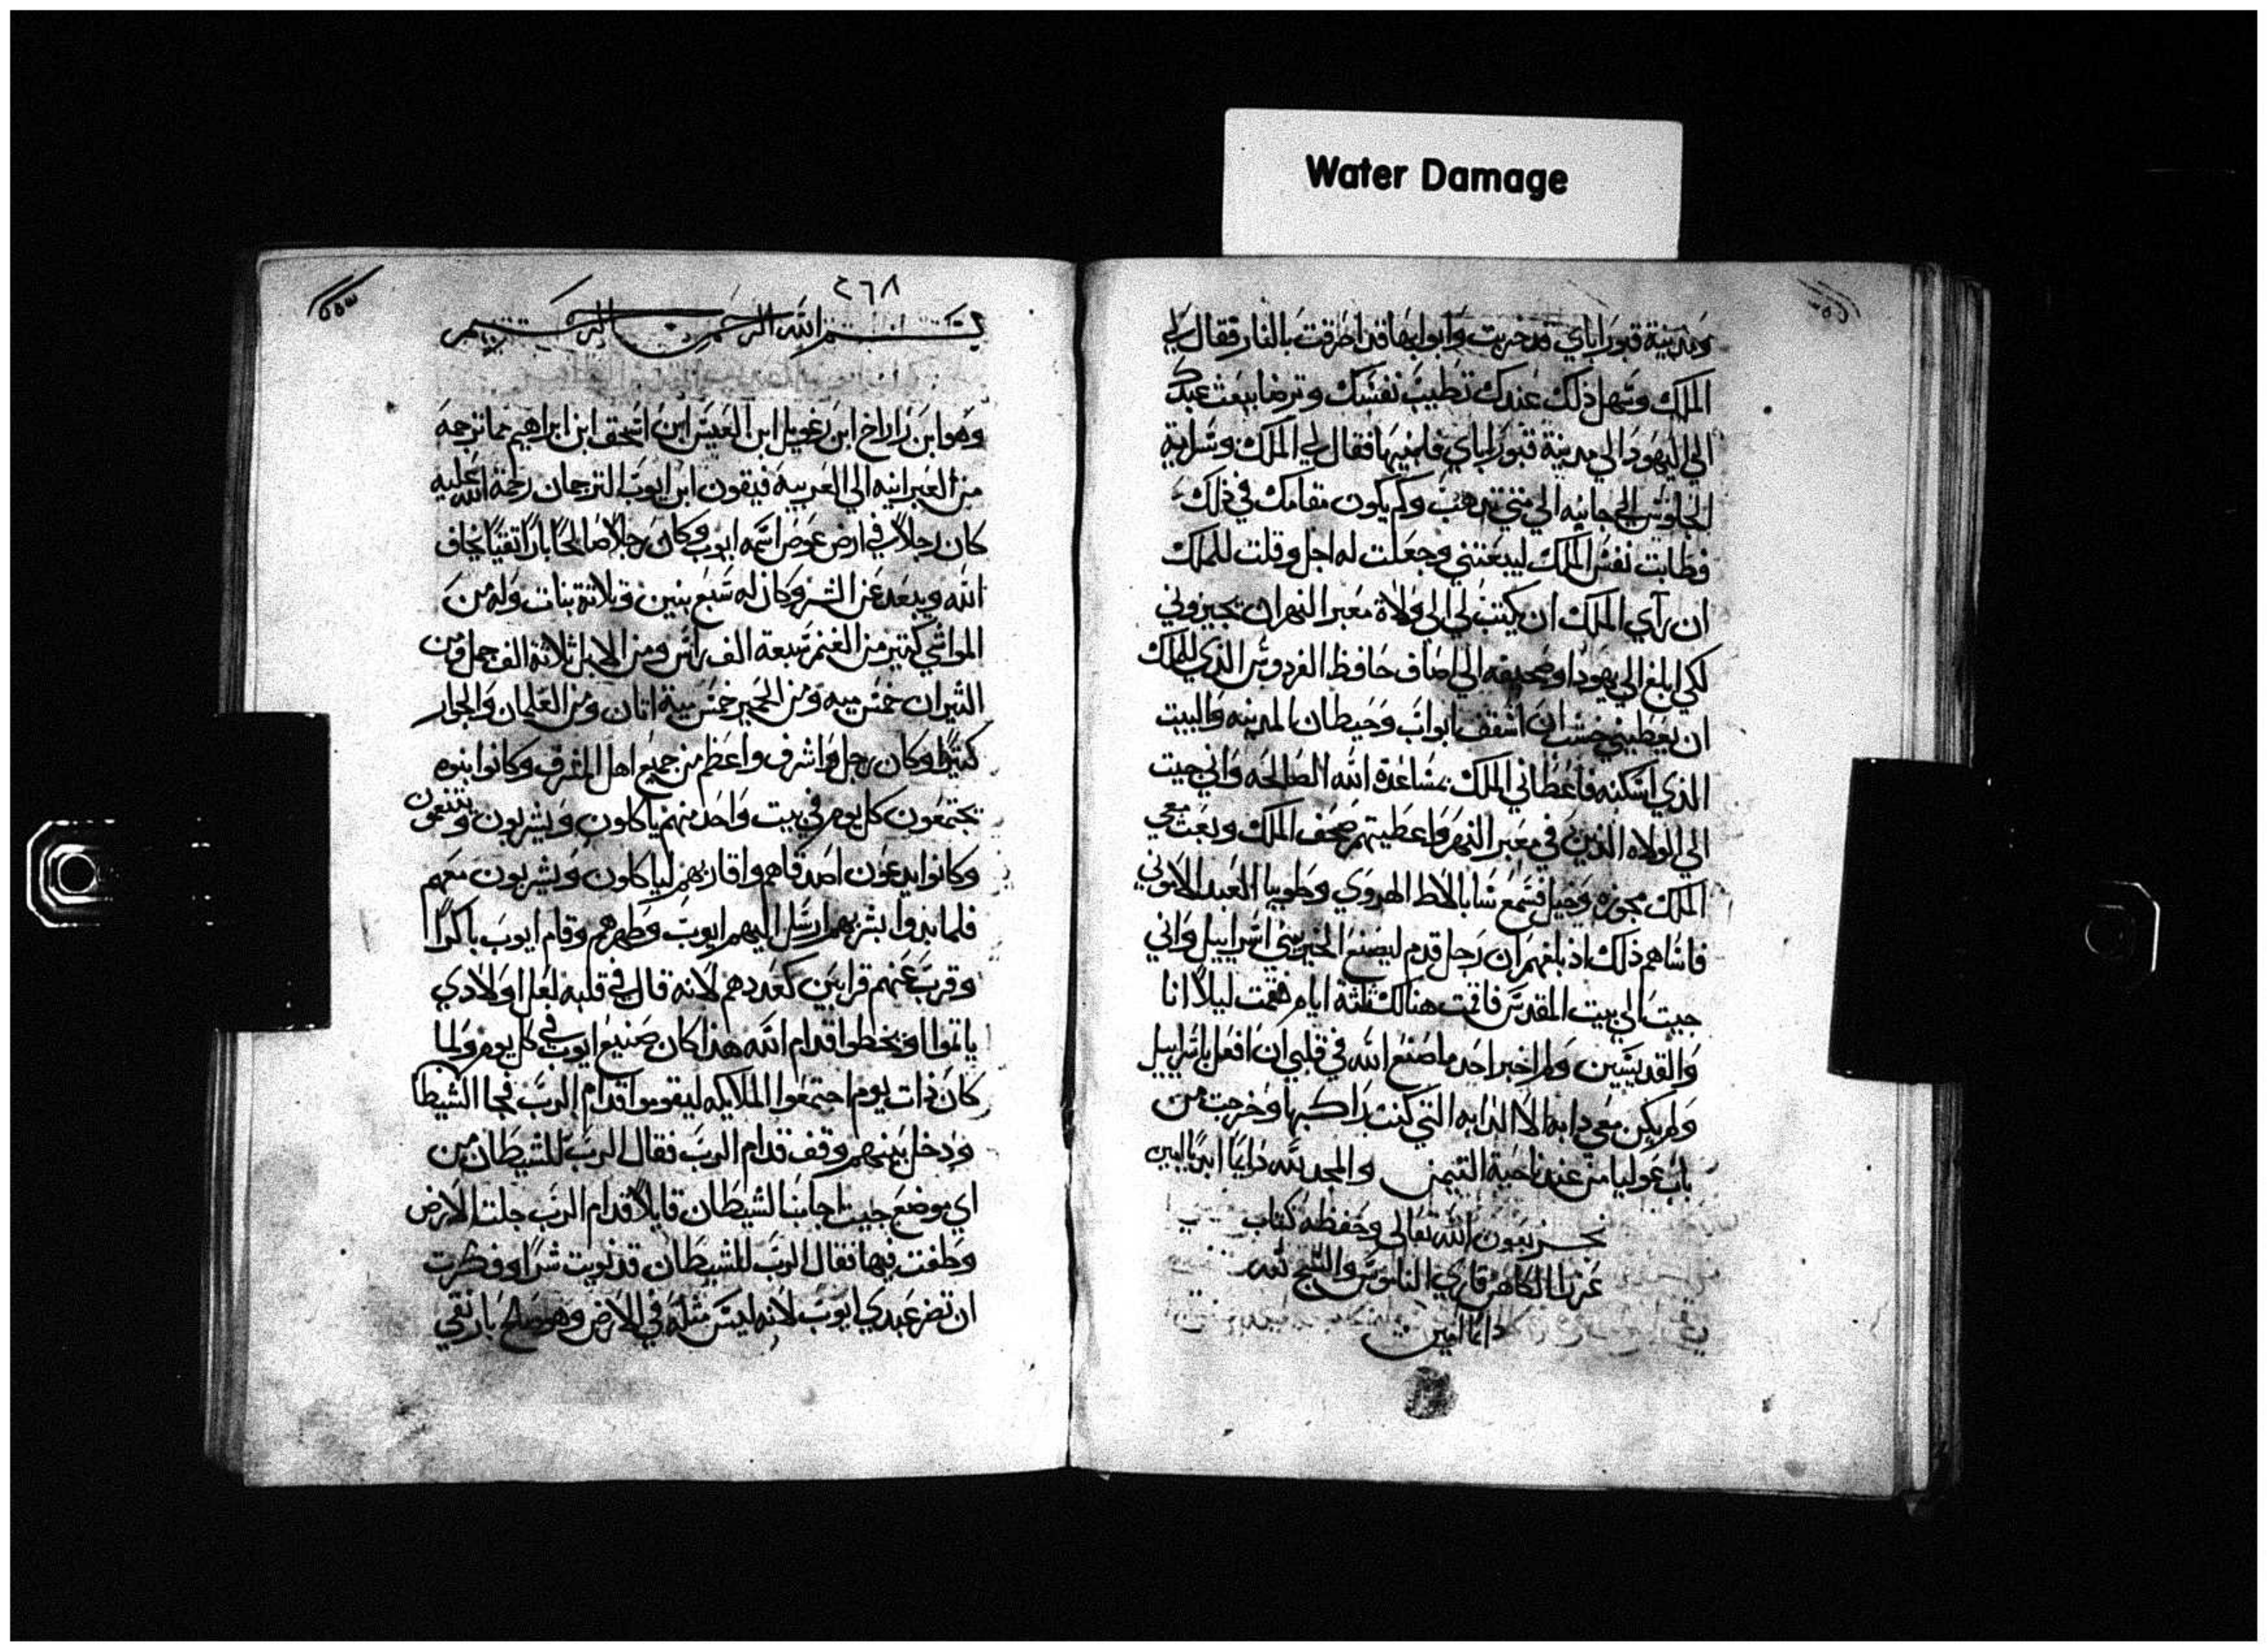 Water Damage
ومدينة قبور اباي قد خربت وابوابها قد احرقت بالنار فقال لي
الملك وسهل ذلك عندك تطيب نفسك وترضا ببعث عبدك
الى اليهودا الي مدينة قبور اباي فابنيها فقال لي الملك وسارية
الجلوس الي جانبه الي متي تذهب وكم يكون مقامك في ذلك
وطابت نفس الملك ليبعثني وجعلت له اجل وقلت للملك
ان رآي الملك ان يكتب لي الى ولاة معبر النهر ان تجيزوني
لكي ابلغ الي يهودا وصحيفه الي اصاف حافظ الفردوس الذي للملك
ان يعطيني خشب ان اسقف ابواب وحيطان المدينه والبيت
الذي اسكنه فاعطاني الملك بمساعدة الله الصالحه واني جيت
الي الولاه الذين في معبر النهر واعطيتهم صحف الملك وبعث معي
الملك بجوزه وخيل فسمع سابالاط الهروي وطوبيا العبد الاموني
فاساهم ذلك اذ بلغهم ان رجل قدم ليصنع الخير ببني اسراييل واني
جيت الي بيت المقدس فاقمت هنالك ثلثة ايام فقمت ليلاً انا
والقديسين ولم اخبر احد ما صنع الله في قلبي ان افعل باسراييل
ولم يكن معي دابه الا الدابه التي كنت راكبها وخرجت من
باب عوليا من عند ناحية التيمن والمجد لله دايما ابديا امين
نجز بعون الله تعالى وحفظه كتاب
عزرا الكاهن قاري الناموس والسبح لله
دايما امين
٤٦٨
بسم الله الرحمن الرحيم
وهو ابن زاراخ ابن رغويل ابن العيس ابن اسحق ابن ابراهيم مما ترجمه
من العبرانيه الي العربيه فيثون ابن ايوب الترجمان رحمة الله عليه
كان رجلاً في ارض عوص اسمه ايوب وكان رجلاً صالحًا بارًا تقيًا يخاف
الله ويبعد عن الشر وكان له سبع بنين وثلاثة بنات وله من
المواشي كثير من الغنم سبعة الف راس ومن الابل ثلاثة الف جمل ومن
الثيران خمس ميه ومن الحمير خمس مية اتان ومن الغلمان والجوار
كثيرًا وكان رجل واشرف واعظم من جميع اهل المشرق وكانوا بنوه
يجتمعون كل يوم في بيت واحد منهم ياكلون ويشربون ويتنعمون
وكانوا يدعون اصدقاهم واقاربهم لياكلون ويشربون معهم
فلما بدوا بشربهم ارسل اليهم ايوب وطهرهم وقام ايوب باكرًا
وقرب عنهم قرابين كعددهم لانه قال في قلبه لعل اولادي
ياثموا او يخطوا قدام الله هذا كان صنيع ايوب في كل يوم ولما
كان ذات يوم اجتمعوا الملايكه ليقوموا قدام الرب فجا الشيطا
ودخل بينهم وقف قدام الرب فقال الرب للشيطان من
اي موضع جيت اجابنا الشيطان قايلاً قدام الرب جلت الارض
وطفت فيها فقال الرب للشيطان قد نويت شرًا وفكرت
ان تضر عبدي ايوب لانه ليس مثله في الارض وهو صالح بار تقي